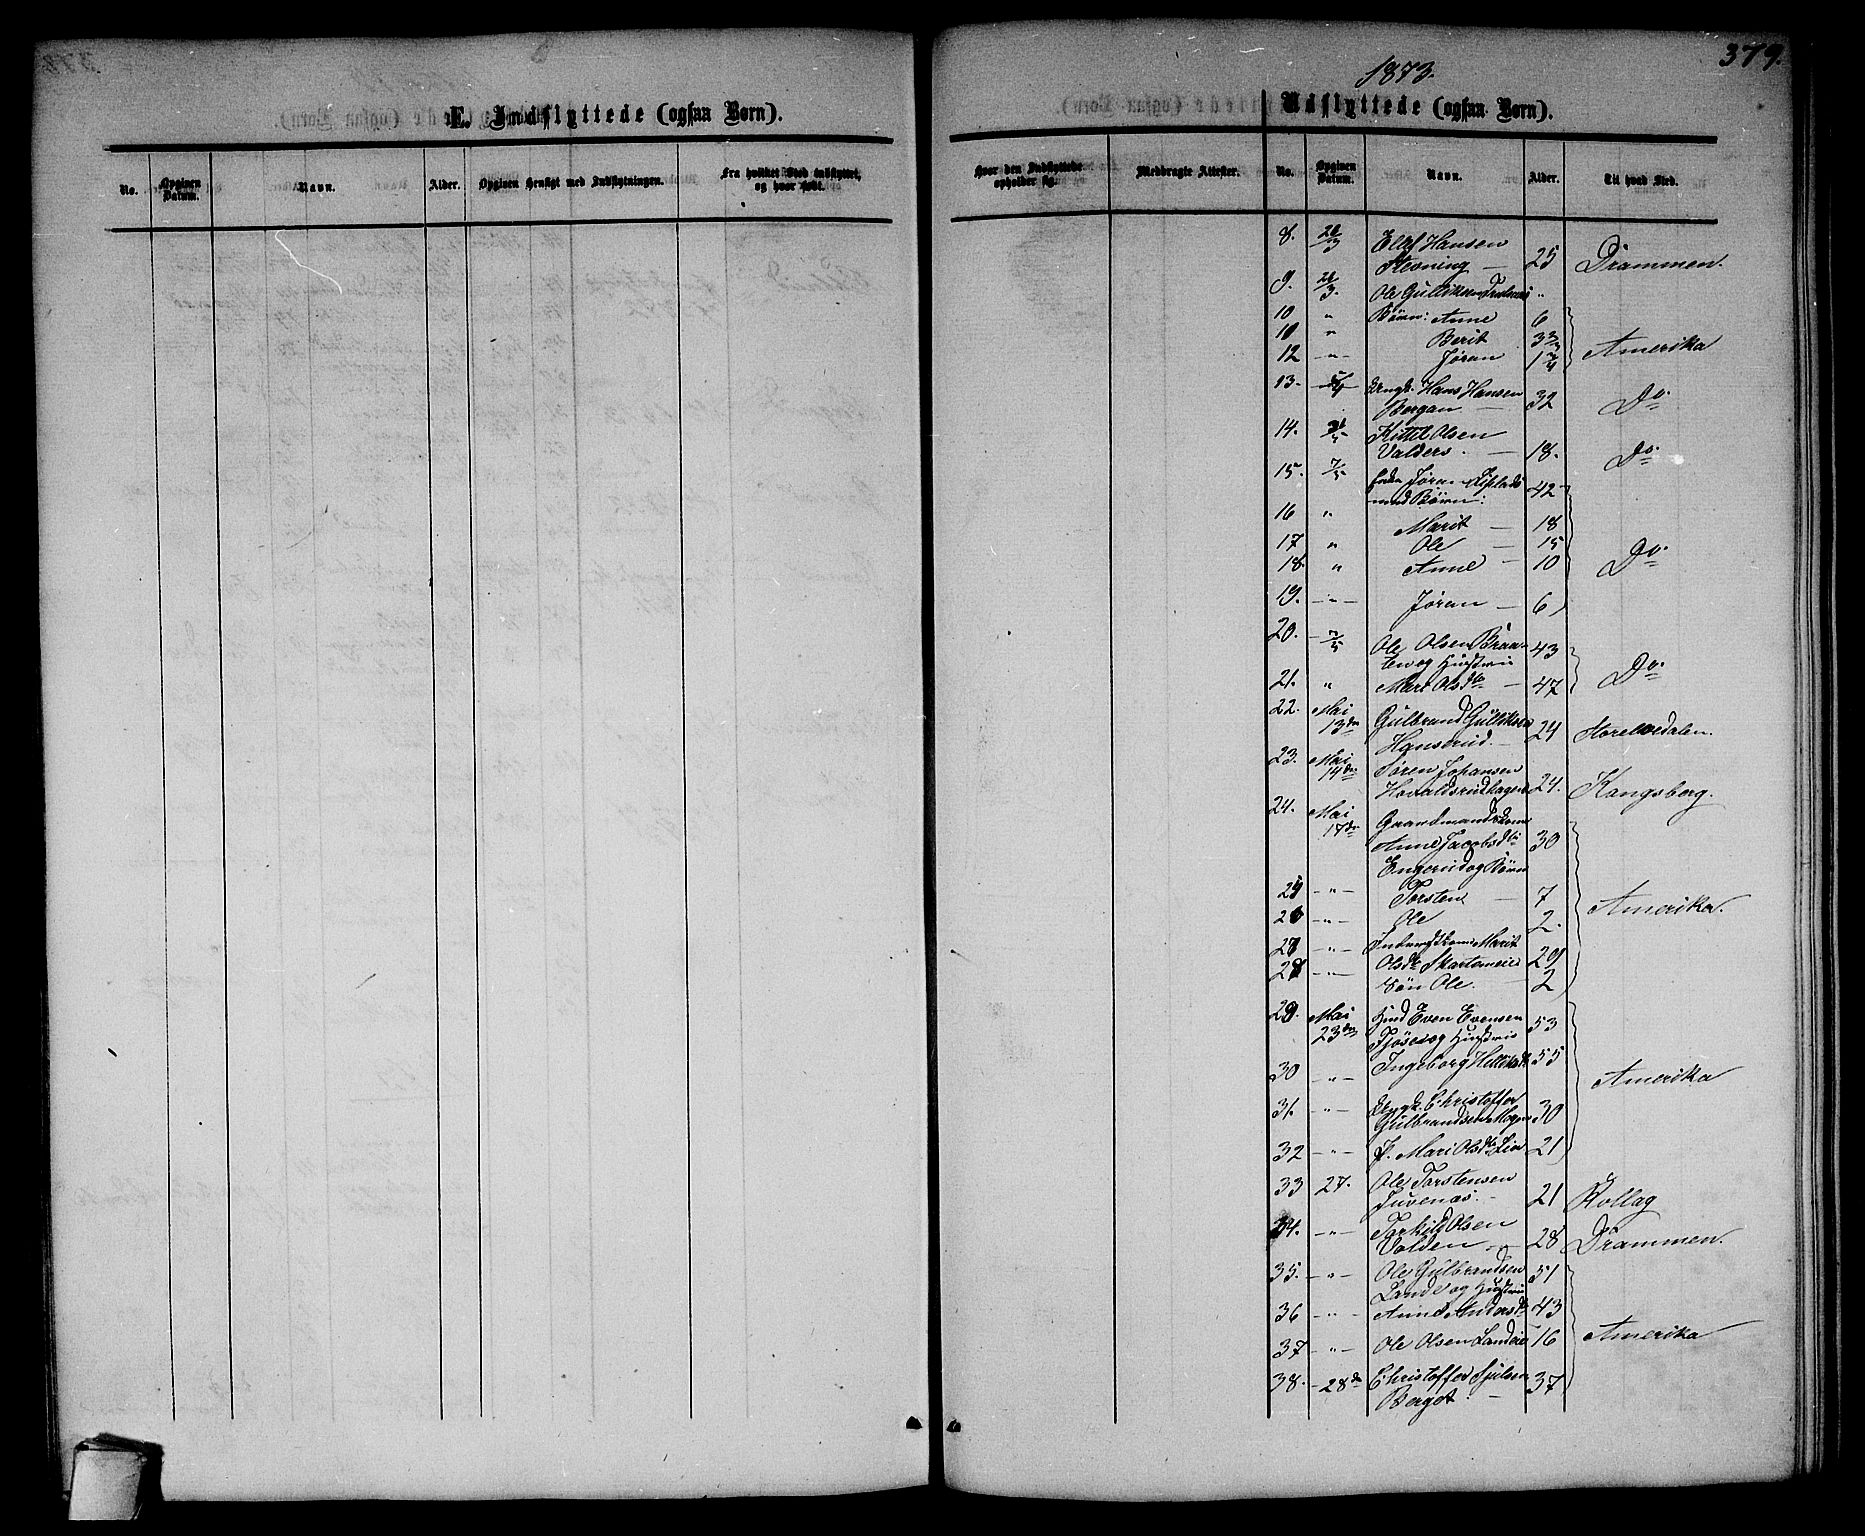 379.
1873.
E. Indflyttede (ogsaa Børn).
Udflyttede (ogsaa Børn).
No. Opgiven Datum. Navn. Alder. Opgiven Hensigt med Indflytningen. Fra hvilket Sted indflyttet, og hvor født.
Hvor den Indflyttede opholder sig. Medbragte Attester. No. Opgiven Datum. Navn. Alder. Til hvad Sted.
8. 26/3 Ellef Hansen
Stevning — 25 Drammen.
9. 26/3. Ole Gulliksen "
10 " Børn: Anne 6
11 " Berit 3 2/3
12 —"— Jøran 1 3/4 Amerika
13. Ungk. Hans Hansen
Bergan — 32 Do.
14. Kittil Olsen
Valders. — 18. Do.
15. 7/5 Jøran
med Børn: 42
16 " Marit — 18
17 " Ole — 15
18. " Anne — 10 Do.
19. —"— Jøran — 6
20. 7/5 Ole Olsen Braa-
ten og Hustru 43
21. " Mari Olsdtr — 47 Do.
22. Mai 13de Gulbrand Gulliksen
Hansrud. — 24 Storelvedalen.
23. Mai 14de Søren Johansen
Hovaldsrudhagen 24. Kongsberg.
24. Mai 17de Gaardmandskone
Anne Jacobsdtr 30
Engerud og Børn
25 —"— Torsten — 7
26 —"— Ole 2. Amerika.
27 —"— Marit
28 —"— Olsdtr 29
Søn Ole. — 2
29. Mai 23de Even Evensen 53
og Hustru
30 —"— Ingeborg 55 Amerika
31. —"— Ungk. Christoffer
Gulbrandsen 30
32 —"— P. Mari Olsdtr Lien 21
33 27. Ole Torstensen
Juvenæs. — 21 Rollag
34. —"— Torkild Olsen
Valden — 28 Drammen.
35. —"— Ole Gulbrandsen 51
og Hustru
36 —"— Anne Andersdtr 43
37 —"— Ole Olsen 16 Amerika
38. —28de Christoffer 37
Berget. —